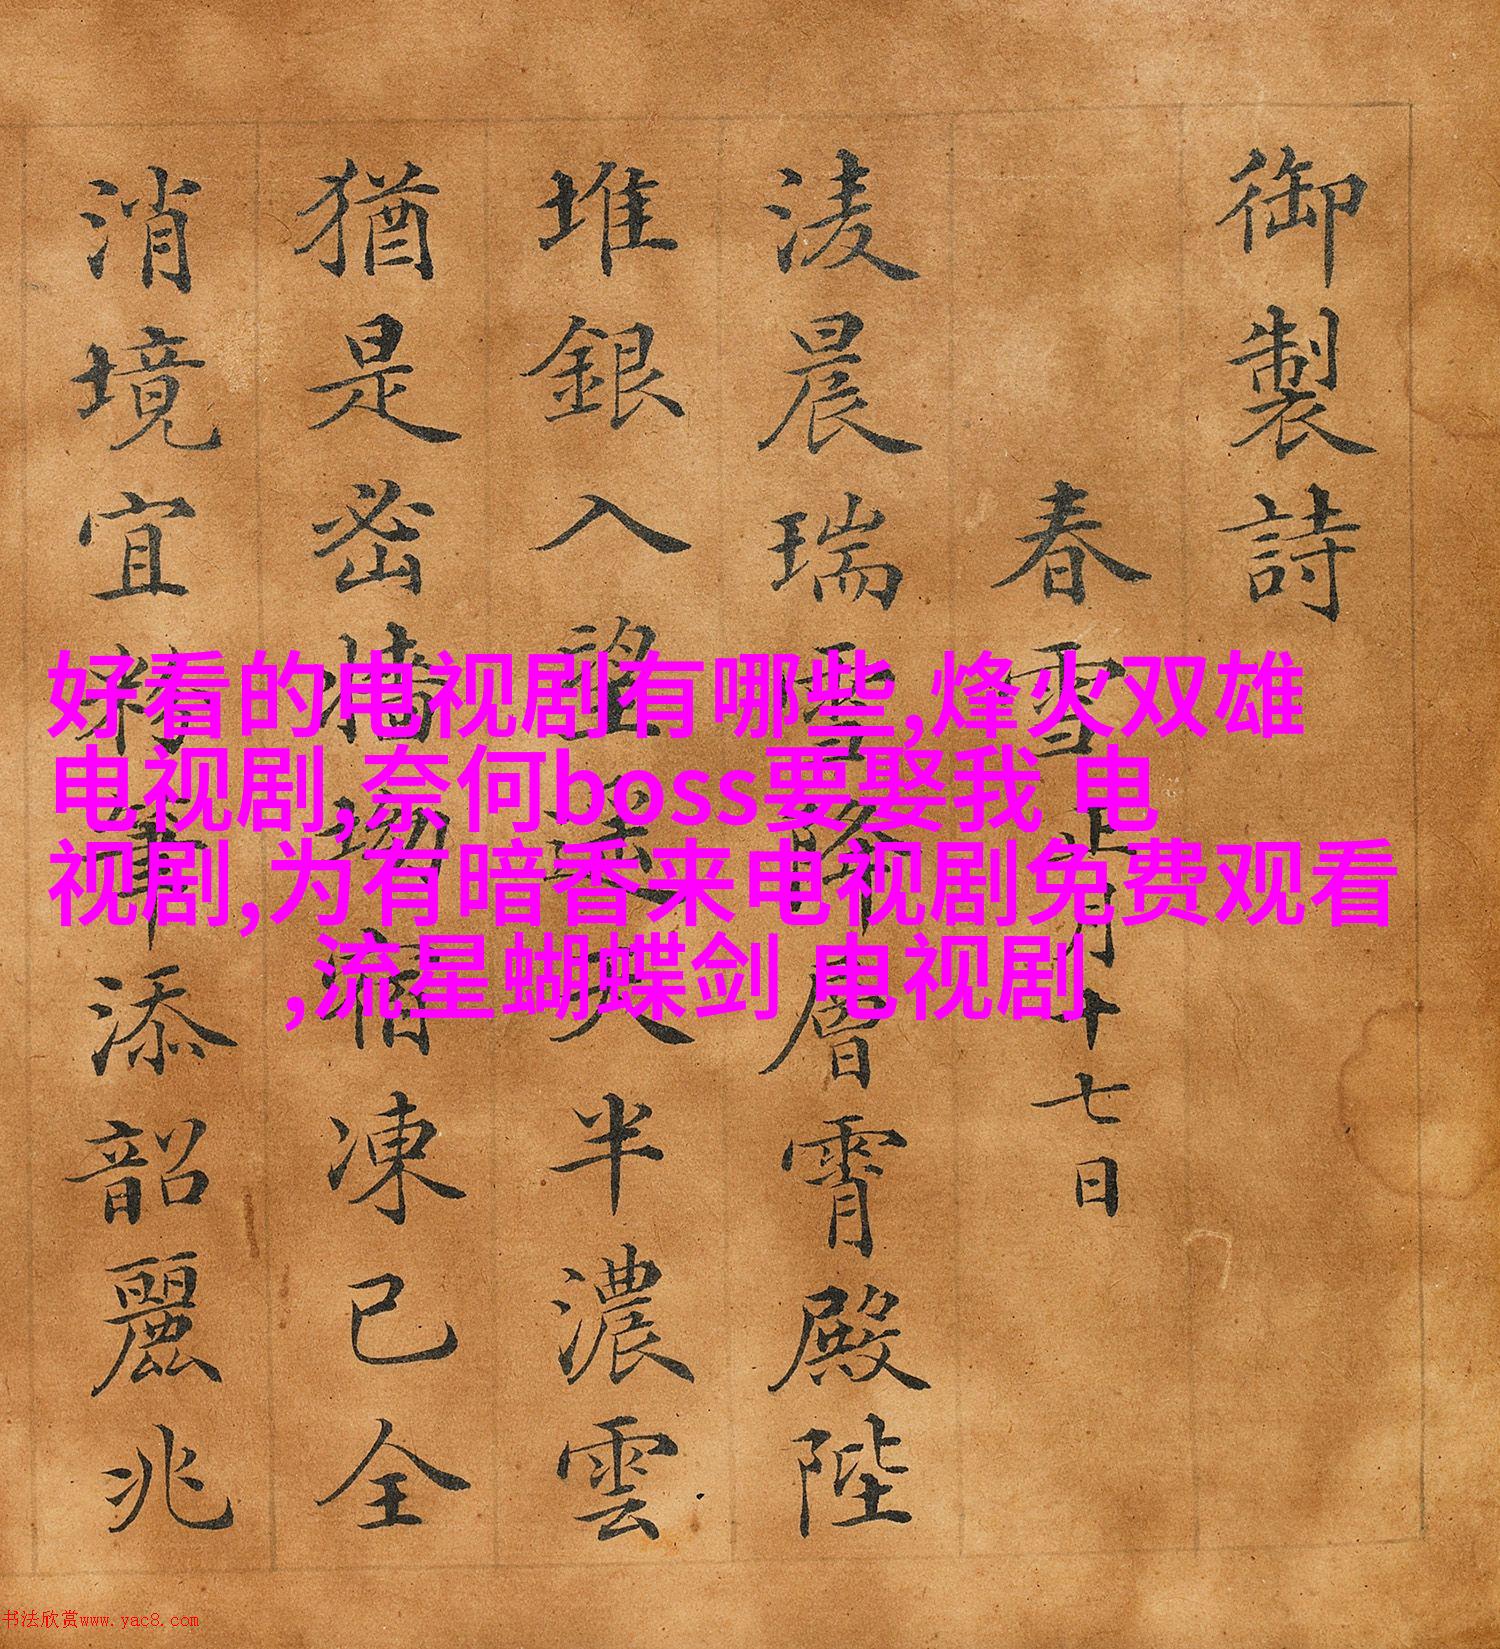 御製詩
春雪 月十七日
淩晨瑞雪降層霄殿陛
堆銀入望遙天半濃雲
猶是密坳宿凍已全
消境宜筆添韶麗兆
好看的电视剧有哪些,烽火双雄
电视剧,奈何boss要娶我 电
视剧,为有暗香来电视剧免费观看
,流星蝴蝶剑 电视剧
书法欣赏www.yac8.com